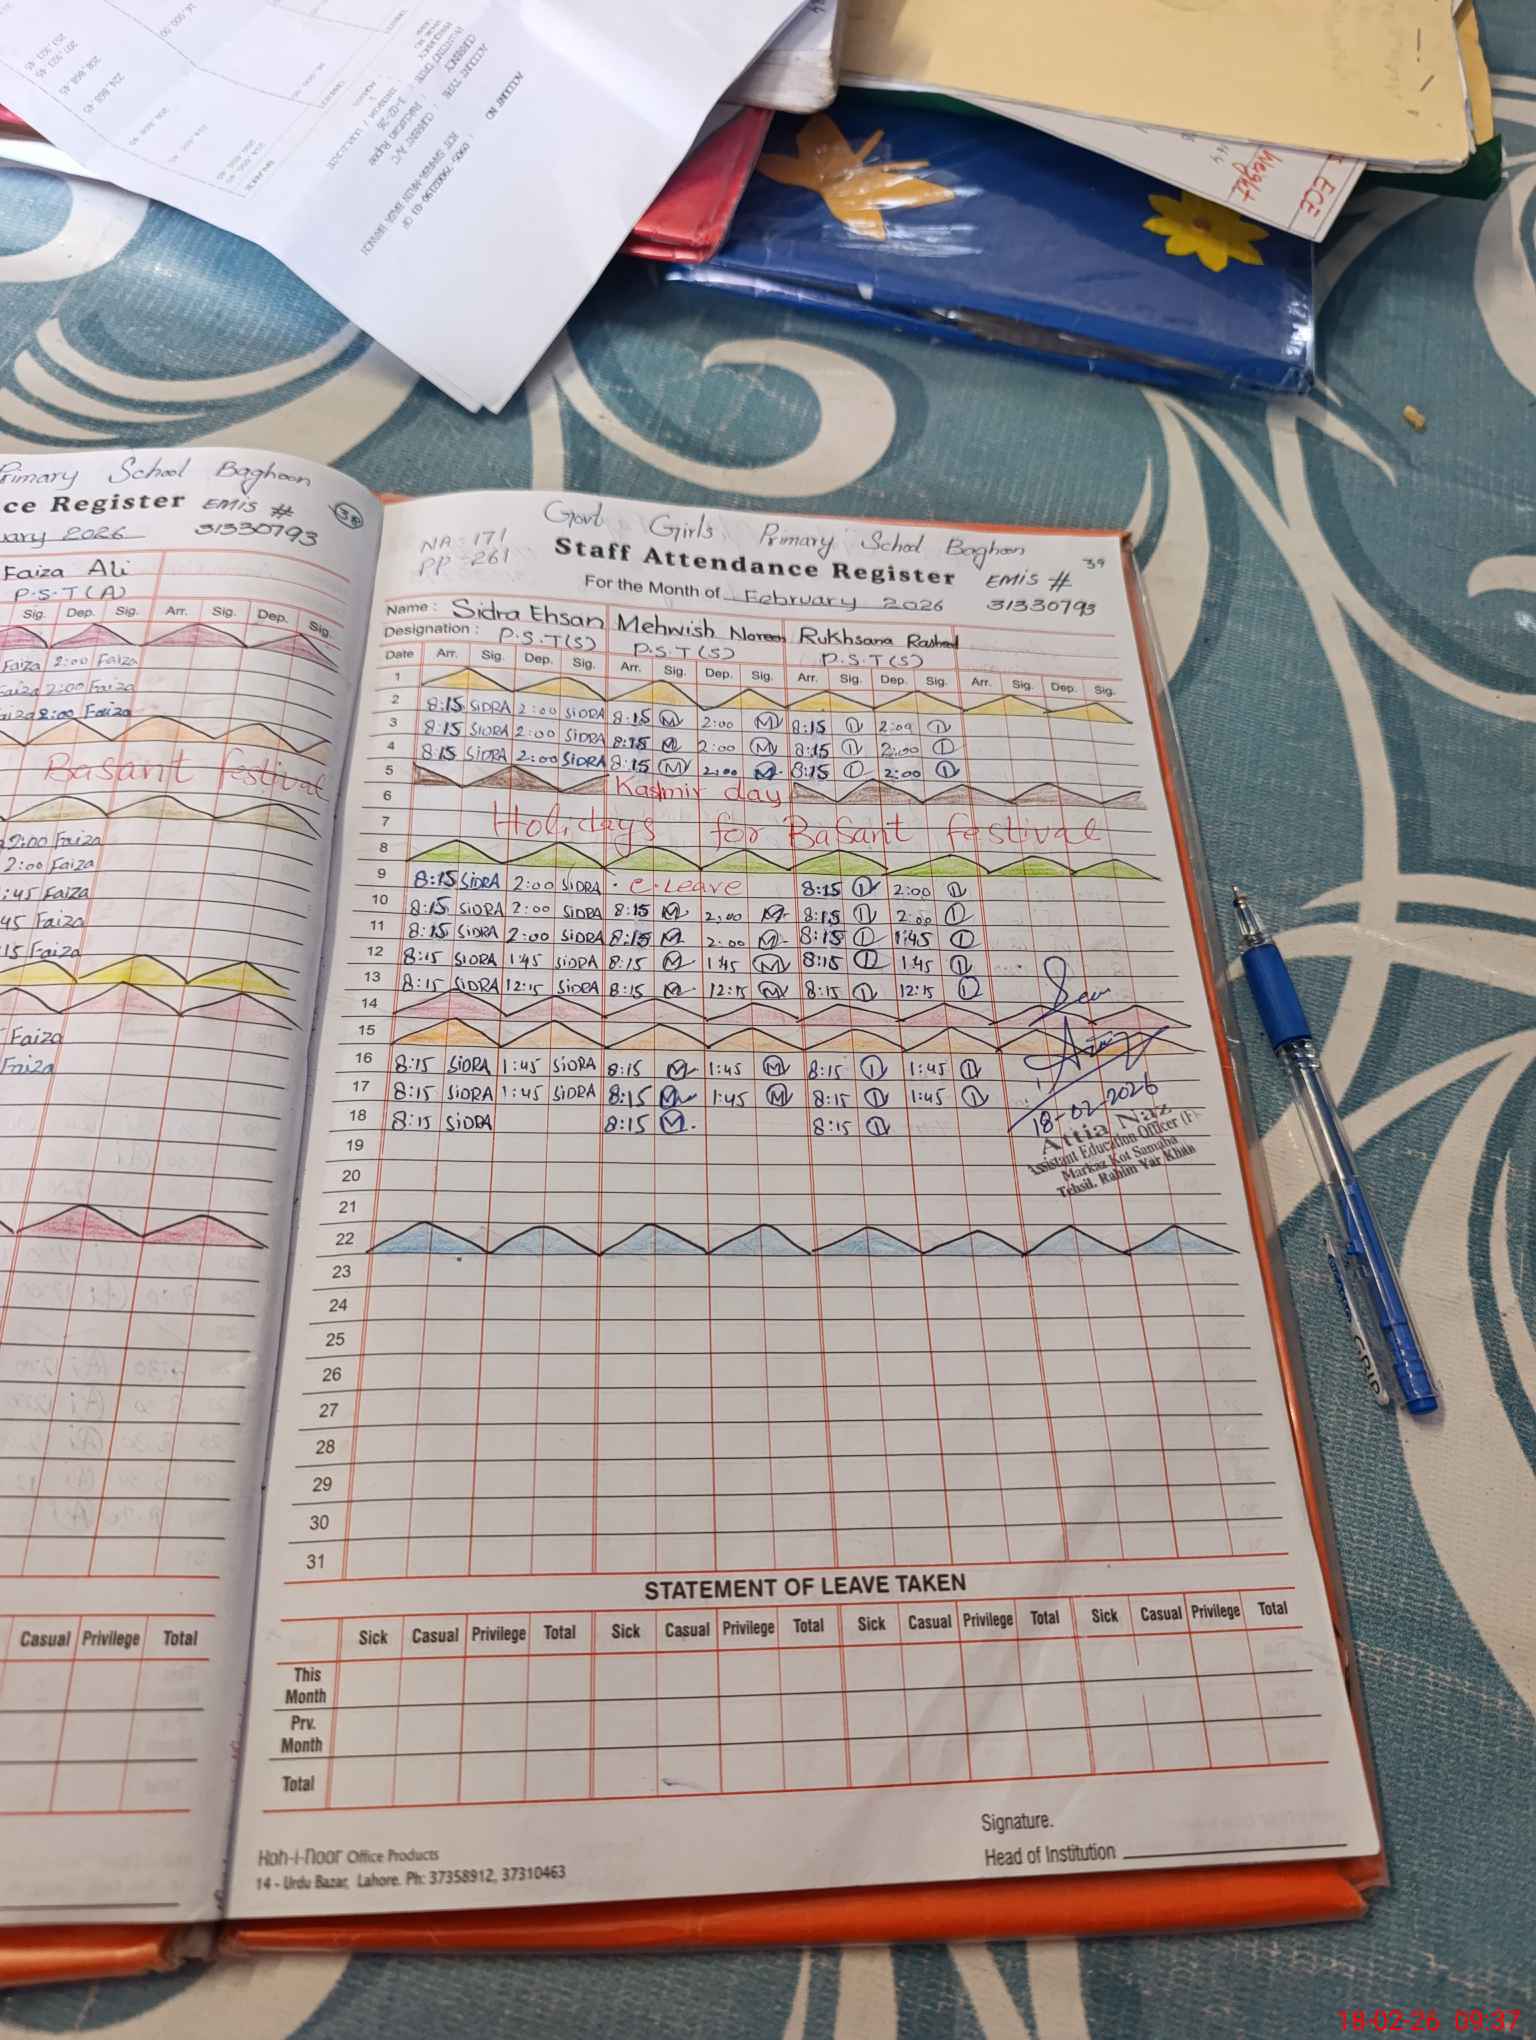 ACCOUNT NO
ACCOUNT TYPE : CURRENT A/C
CURRENCY
ECE
Weight
Primary School Baghoon
ce Register EMIS # 38
uary 2026 31330793
Faiza Ali
P.S.T (A)
Sig. Dep. Sig. Arr. Sig. Dep. Sig.
Faiza 2:00 Faiza
Faiza 2:00 Faiza
Faiza 2:00 Faiza
Basant festival
2:00 Faiza
2:00 Faiza
:45 Faiza
45 Faiza
15 Faiza
Faiza
Faiza
Casual Privilege Total
Govt Girls Primary School Baghoon
NA-171
PP-261
Staff Attendance Register EMIS # 39
For the Month of February 2026 31330793
Name: Sidra Ehsan Mehwish Noreen Rukhsana Rashed
Designation: P.S.T(S) P.S.T(S) P.S.T(S)
Date Arr. Sig. Dep. Sig. Arr. Sig. Dep. Sig. Arr. Sig. Dep. Sig. Arr. Sig. Dep. Sig.
1
2 8:15 SIDRA 2:00 SIDRA 8:15 M 2:00 M 8:15 2:00
3 8:15 SIDRA 2:00 SIDRA 8:15 M 2:00 M 8:15 2:00
4 8:15 SIDRA 2:00 SIDRA 8:15 M 2:00 M 8:15 2:00
5 Kasmir day
6
7 Holidays for Basant festival
8
9 8:15 SIDRA 2:00 SIDRA e.Leave 8:15 2:00
10 8:15 SIDRA 2:00 SIDRA 8:15 M 2:00 M 8:15 2:00
11 8:15 SIDRA 2:00 SIDRA 8:15 M 2:00 M 8:15 1:45
12 8:15 SIDRA 1:45 SIDRA 8:15 M 1:45 M 8:15 1:45
13 8:15 SIDRA 12:15 SIDRA 8:15 M 12:15 M 8:15 12:15
14
15
16 8:15 SIDRA 1:45 SIDRA 8:15 M 1:45 M 8:15 1:45
17 8:15 SIDRA 1:45 SIDRA 8:15 M 1:45 M 8:15 1:45
18 8:15 SIDRA 8:15 M 8:15
18-02-2026
Attia Naz
Assistant Education Officer (F)
Markaz Kot Samaba
Tehsil. Rahim Yar Khan
19
20
21
22
23
24
25
26
27
28
29
30
31
STATEMENT OF LEAVE TAKEN
Sick Casual Privilege Total Sick Casual Privilege Total Sick Casual Privilege Total Sick Casual Privilege Total
This Month
Prv. Month
Total
Signature.
Head of Institution
Koh-i-Noor Office Products
14 - Urdu Bazar, Lahore. Ph: 37358912, 37310463
GRIP
18-02-26 09:37